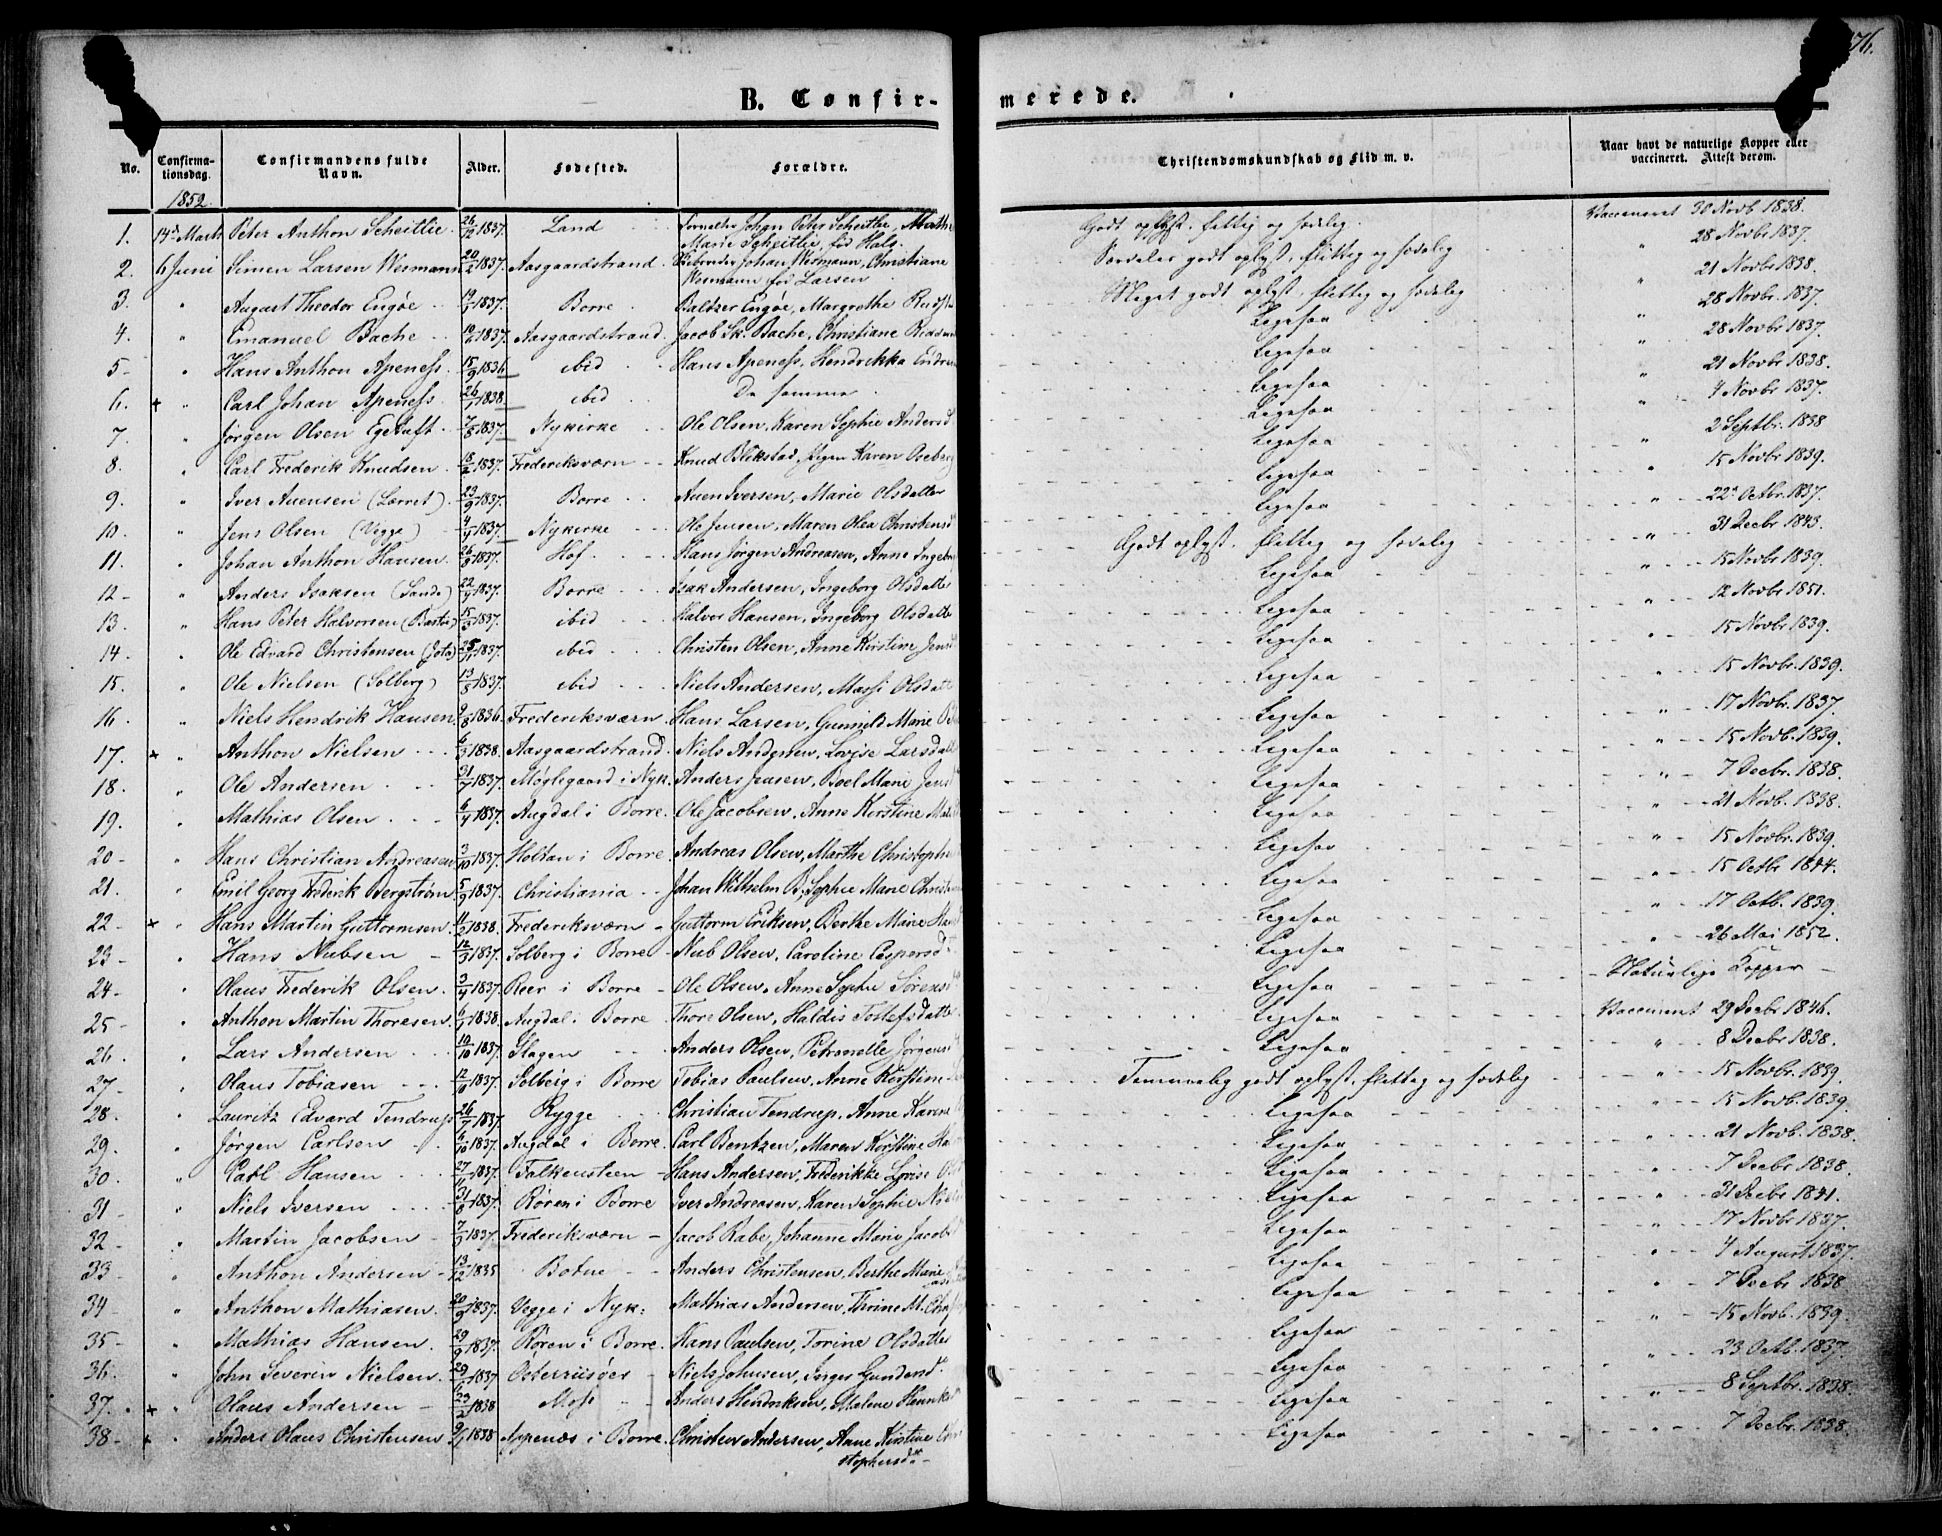 176.
B. Confir-
merede.
No.
Confirma-
tionsdag.
Confirmandens fulde
Navn.
Alder.
Fødested.
Forældre.
Christendomskundskab og Flid m. v.
Naar havt de naturlige Kopper eller
vaccineret. Attest derom.
1852
1. 14de Marts Peter Anthon Scheitlie 26/12 1837. Land Johan Peter Scheitlie, Marthe Godt oplyst, flittig og sædelig. Vaccineret 30 Novb 1838.
Marie Scheitlie, fød Hals.
2. 6 Juni Simen Larsen Wermann 20/2 1837. Aasgaardstrand. Johan Wermann, Christiane Særdeles godt oplyst, flittig og sædelig " 28 Novbr 1837.
Wermann fød Larsen
3. " August Theodor Engøe 1837. Borre Baltzer Engøe, Margrethe Meget godt oplyst, flittig og sædelig " 21 Novbr 1838.
4. " Emanuel Bache 1837. Aasgaardstrand. Jacob Sk. Bache, Christiane Ligesaa " 28 Novbr. 1837.
5 " Hans Anthon Apeness. 15/9 1836 ibid Hans Apeness, Hendrikka Ligesaa " 28 Novbr 1837.
6. + " Carl Johan Apeness 26/1 1838. ibid De samme Ligesaa " 21 Novbr 1838.
7. " Jørgen Olsen Egetuft 7/8 1837. Nykirke Ole Olsen, Karen Sophie Andersd Ligesaa " 4 Novbr 1837.
8. " Carl Frederik Knudsen 18/2 1837. Frederiksværn Knud Blikstad, Karen Oseberg Ligesaa " 2 Septbr. 1838
9. " Iver Auensen 23/9 1837. Borre Auen Iversen, Marie Olsdatter Ligesaa " 15 Novbr 1839.
10. " Jens Olsen (Vegge) 4/4 1837. Nykirke Ole Jensen, Maren Olea Christensd Ligesaa " 22de Octbr. 1837.
11. " Johan Anthon Hansen 26/8 1837. Hof. Hans Jørgen Andreasen, Anne Ingeborg Godt oplyst, flittig og sædelig " 31 Decbr 1843.
12 " Anders Isaksen (Sande) 22/4 1837. Borre Isak Andersen, Ingeborg Olsdatter Ligesaa " 15 Novbr 1839.
13. " Hans Peter Halvorsen 15/5 1837. ibid Halvor Hansen, Ingeborg Olsdatter Ligesaa " 12 Novbr 1851.
14. " Ole Edvard Christensen 1837. ibid Christen Olsen, Anne Kirstine Ligesaa " 15 Novbr. 1839.
15. " Ole Nielsen (Solberg) 13/5 1837. ibid Niels Andersen, Massi Olsdatt Ligesaa " 15 Novbr. 1839.
16. " Niels Hendrik Hansen 9/8 1836. Frederiksværn. Hans Larsen, Gunnild Marie Ligesaa " 17 Novbr. 1837.
17. + " Anthon Nielsen 6/3 1838. Aasgaardstrand Niels Andersen, Lovise Larsdatt Ligesaa " 15 Novb. 1839.
18. " Ole Andersen 31/7 1837. Møglegaard i Nyk. Anders Jensen, Boel Marie Jens Ligesaa " 7 Decbr. 1838.
19. " Mathias Olsen 6/4 1837. Augdal i Borre. Ole Jacobsen, Anne Kirstine Ligesaa " 21 Novb. 1838.
20 " Hans Christian Andreasen 3/10 1837. Holtan i Borre. Andreas Olsen, Marthe Christophe Ligesaa " 15 Novbr. 1839.
21. " Emil Georg Frederik Bergstrøm. 5/9 1837. Christiania Johan Wilhelm B, Sophie Marie Christ Ligesaa 15 Octbr 1844.
22 + " Hans Martin Guttormsen. 11/2 1838. Frederiksværn Guttorm Eriksen, Berthe Marie Ligesaa " 17 Octb. 1839.
23 " Hans Nubsen 12/3 1837. Solberg i Borre Nub Olsen, Caroline Caspersd Ligesaa " 26 Mai 1852.
24 " Olaus Frederik Olsen. 3/4 1837. Reer i Borre Ole Olsen, Anne Sophie Sørensd Ligesaa Naturlige Kopper
25 " Anthon Martin Thoresen. 6/1 1838. Augdal i Borre Thore Olsen, Haldis Tostefsdatter Ligesaa Vaccineret 29 Decbr 1846.
26. " Lars Andersen 19/10 1837. Slagen Anders Olsen, Petronelle Jørgens Ligesaa " 8 Decbr 1838.
27 " Olaus Tobiasen 1837. Solberg i Borre Tobias Paulsen, Anne Kirstine Temmelig godt oplyst, flittig og sædelig " 15 Novbr. 1839.
28. " Lauritz Edvard Tendrup 26/7 1837. Rygge Christian Tendrup, Anne Karine Ligesaa " 15 Novb. 1839.
29. " Jørgen Carlsen 6/10 1837. Augdal i Borre. Carl Bentzen, Maren Kirstine Ligesaa " 21 Novb. 1838.
30. " Carl Hansen 27/11 1837. Falkensteen Hans Andersen, Frederikke Lovise Ligesaa " 7 Decbr 1838.
31 " Niels Iversen 31/8 1837. Røren i Borre Iver Andreasen, Karen Sophie Ligesaa " 31 Decbr 1841.
32 " Martin Jacobsen 7/5 1837. Frederiksværn Jacob Rabe, Johanne Marie Jacobs Ligesaa " 17 Novbr 1837.
33 " Anthon Andersen 13/12 1835 Botne Anders Christensen, Berthe Marie Ligesaa " 4 August 1837.
34 " Anthon Mathiasen. 20/9 1837. Vegge i Nyk: Mathias Andersen, Thrine M. Ligesaa " 7 Decbr 1838
35 " Mathias Hansen. 29/9 1837. Røren i Borre. Hans Paulsen, Torine Olsdatter Ligesaa " 15 Novb. 1839.
36. " John Severin Nielsen. 1837 Østerriisøer Niels Johnsen, Inger Gundersd. Ligesaa " 23 Octb. 1837
37. + " Olaus Andersen 23/2 1838 Moss Anders Hendriksen, Malene Henriks Ligesaa " 8 Septbr. 1838.
38 + " Anders Olaus Christensen 9/1 1838 Apenæs i Borre. Christen Andersen, Anne Kirstine Chri Ligesaa " 7 Decbr. 1838.
stophersd.